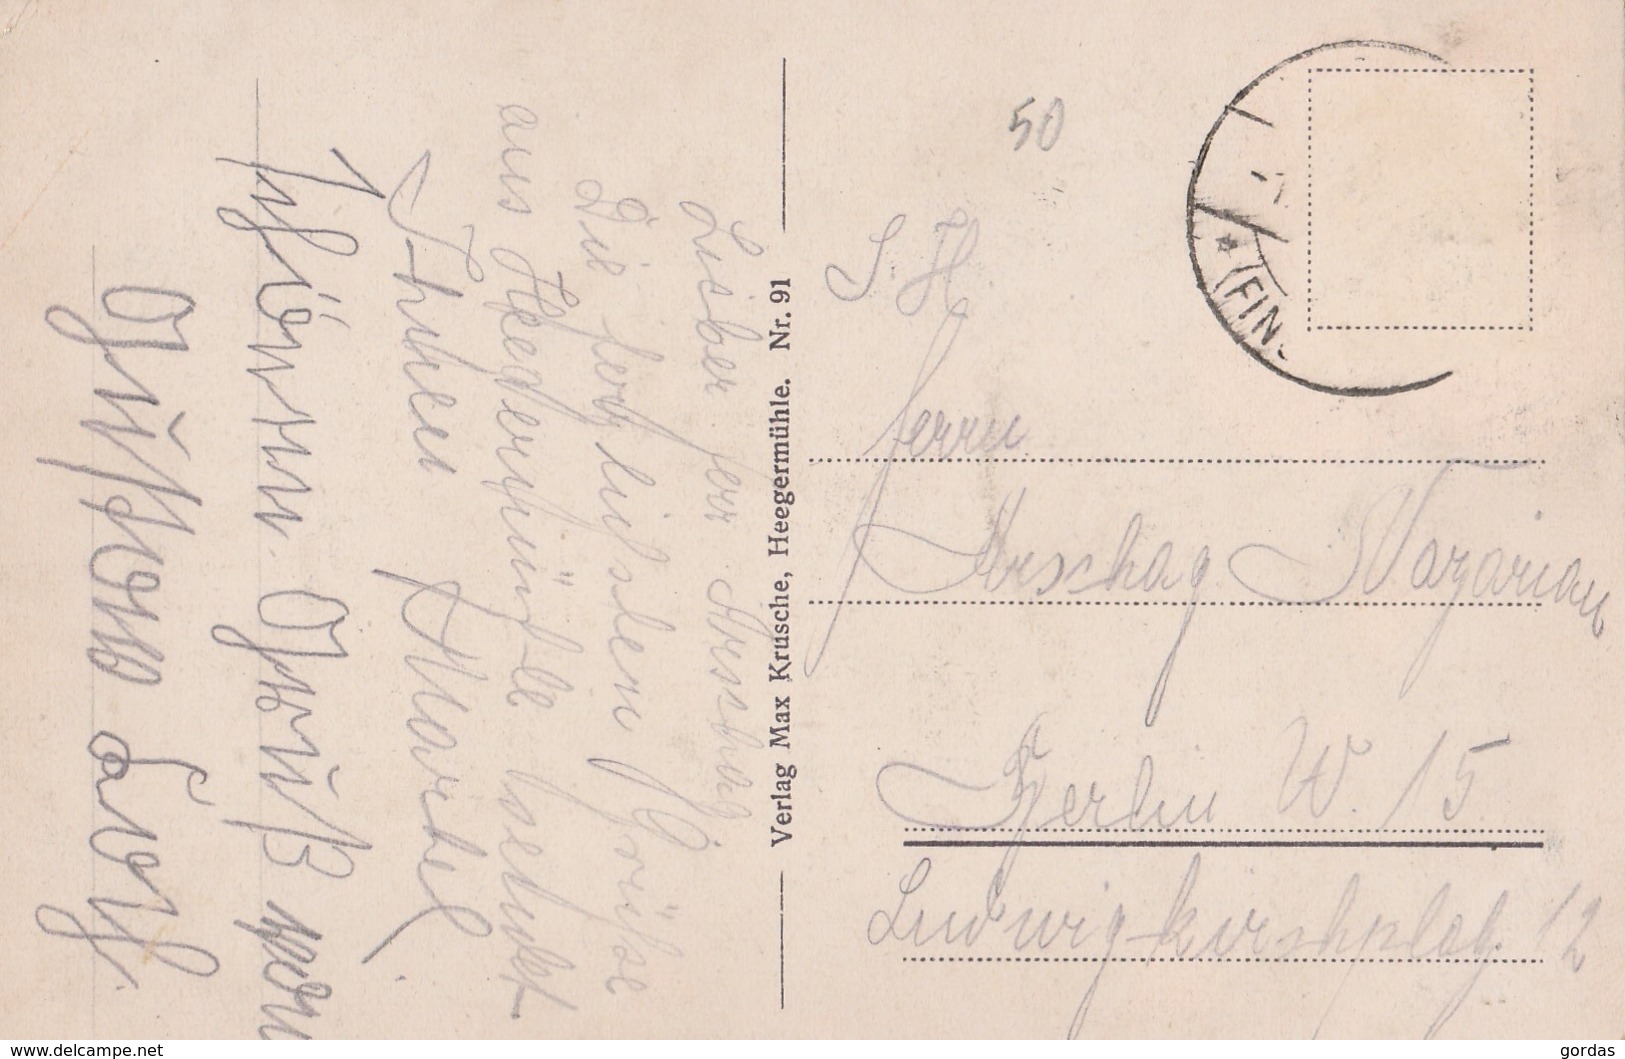 Lieber Herr Arschag
Die herzlichsten Grüße
aus Heegermühle sendet
Ihnen Martel.
Schönen Gruß von
Gustav
Verlag Max Krusche, Heegermühle. Nr. 91
50
S. H.
Herrn
Arschag Nazarian
Berlin W. 15
Ludwigkirschplatz 12
* (FIN
www.delcampe.net
gordas